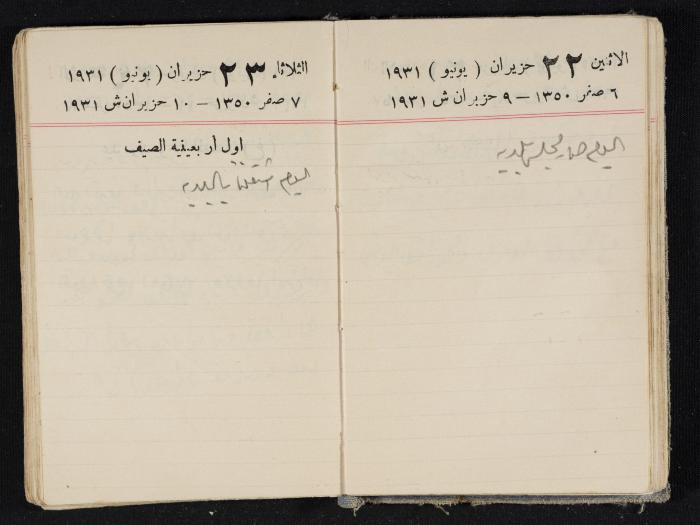 الاثنين ٢٢ حزيران ( يونيو ) ١٩٣١
٦ صفر ١٣٥٠ — ٩ حزيران ش ١٩٣١
اليوم صار مجلس بلديه
الثلاثاء ٢٣ حزيران ( يونيو ) ١٩٣١
٧ صفر ١٣٥٠ — ١٠ حزيران ش ١٩٣١
اول اربعينية الصيف
اليوم اشتغلنا بالبلديه